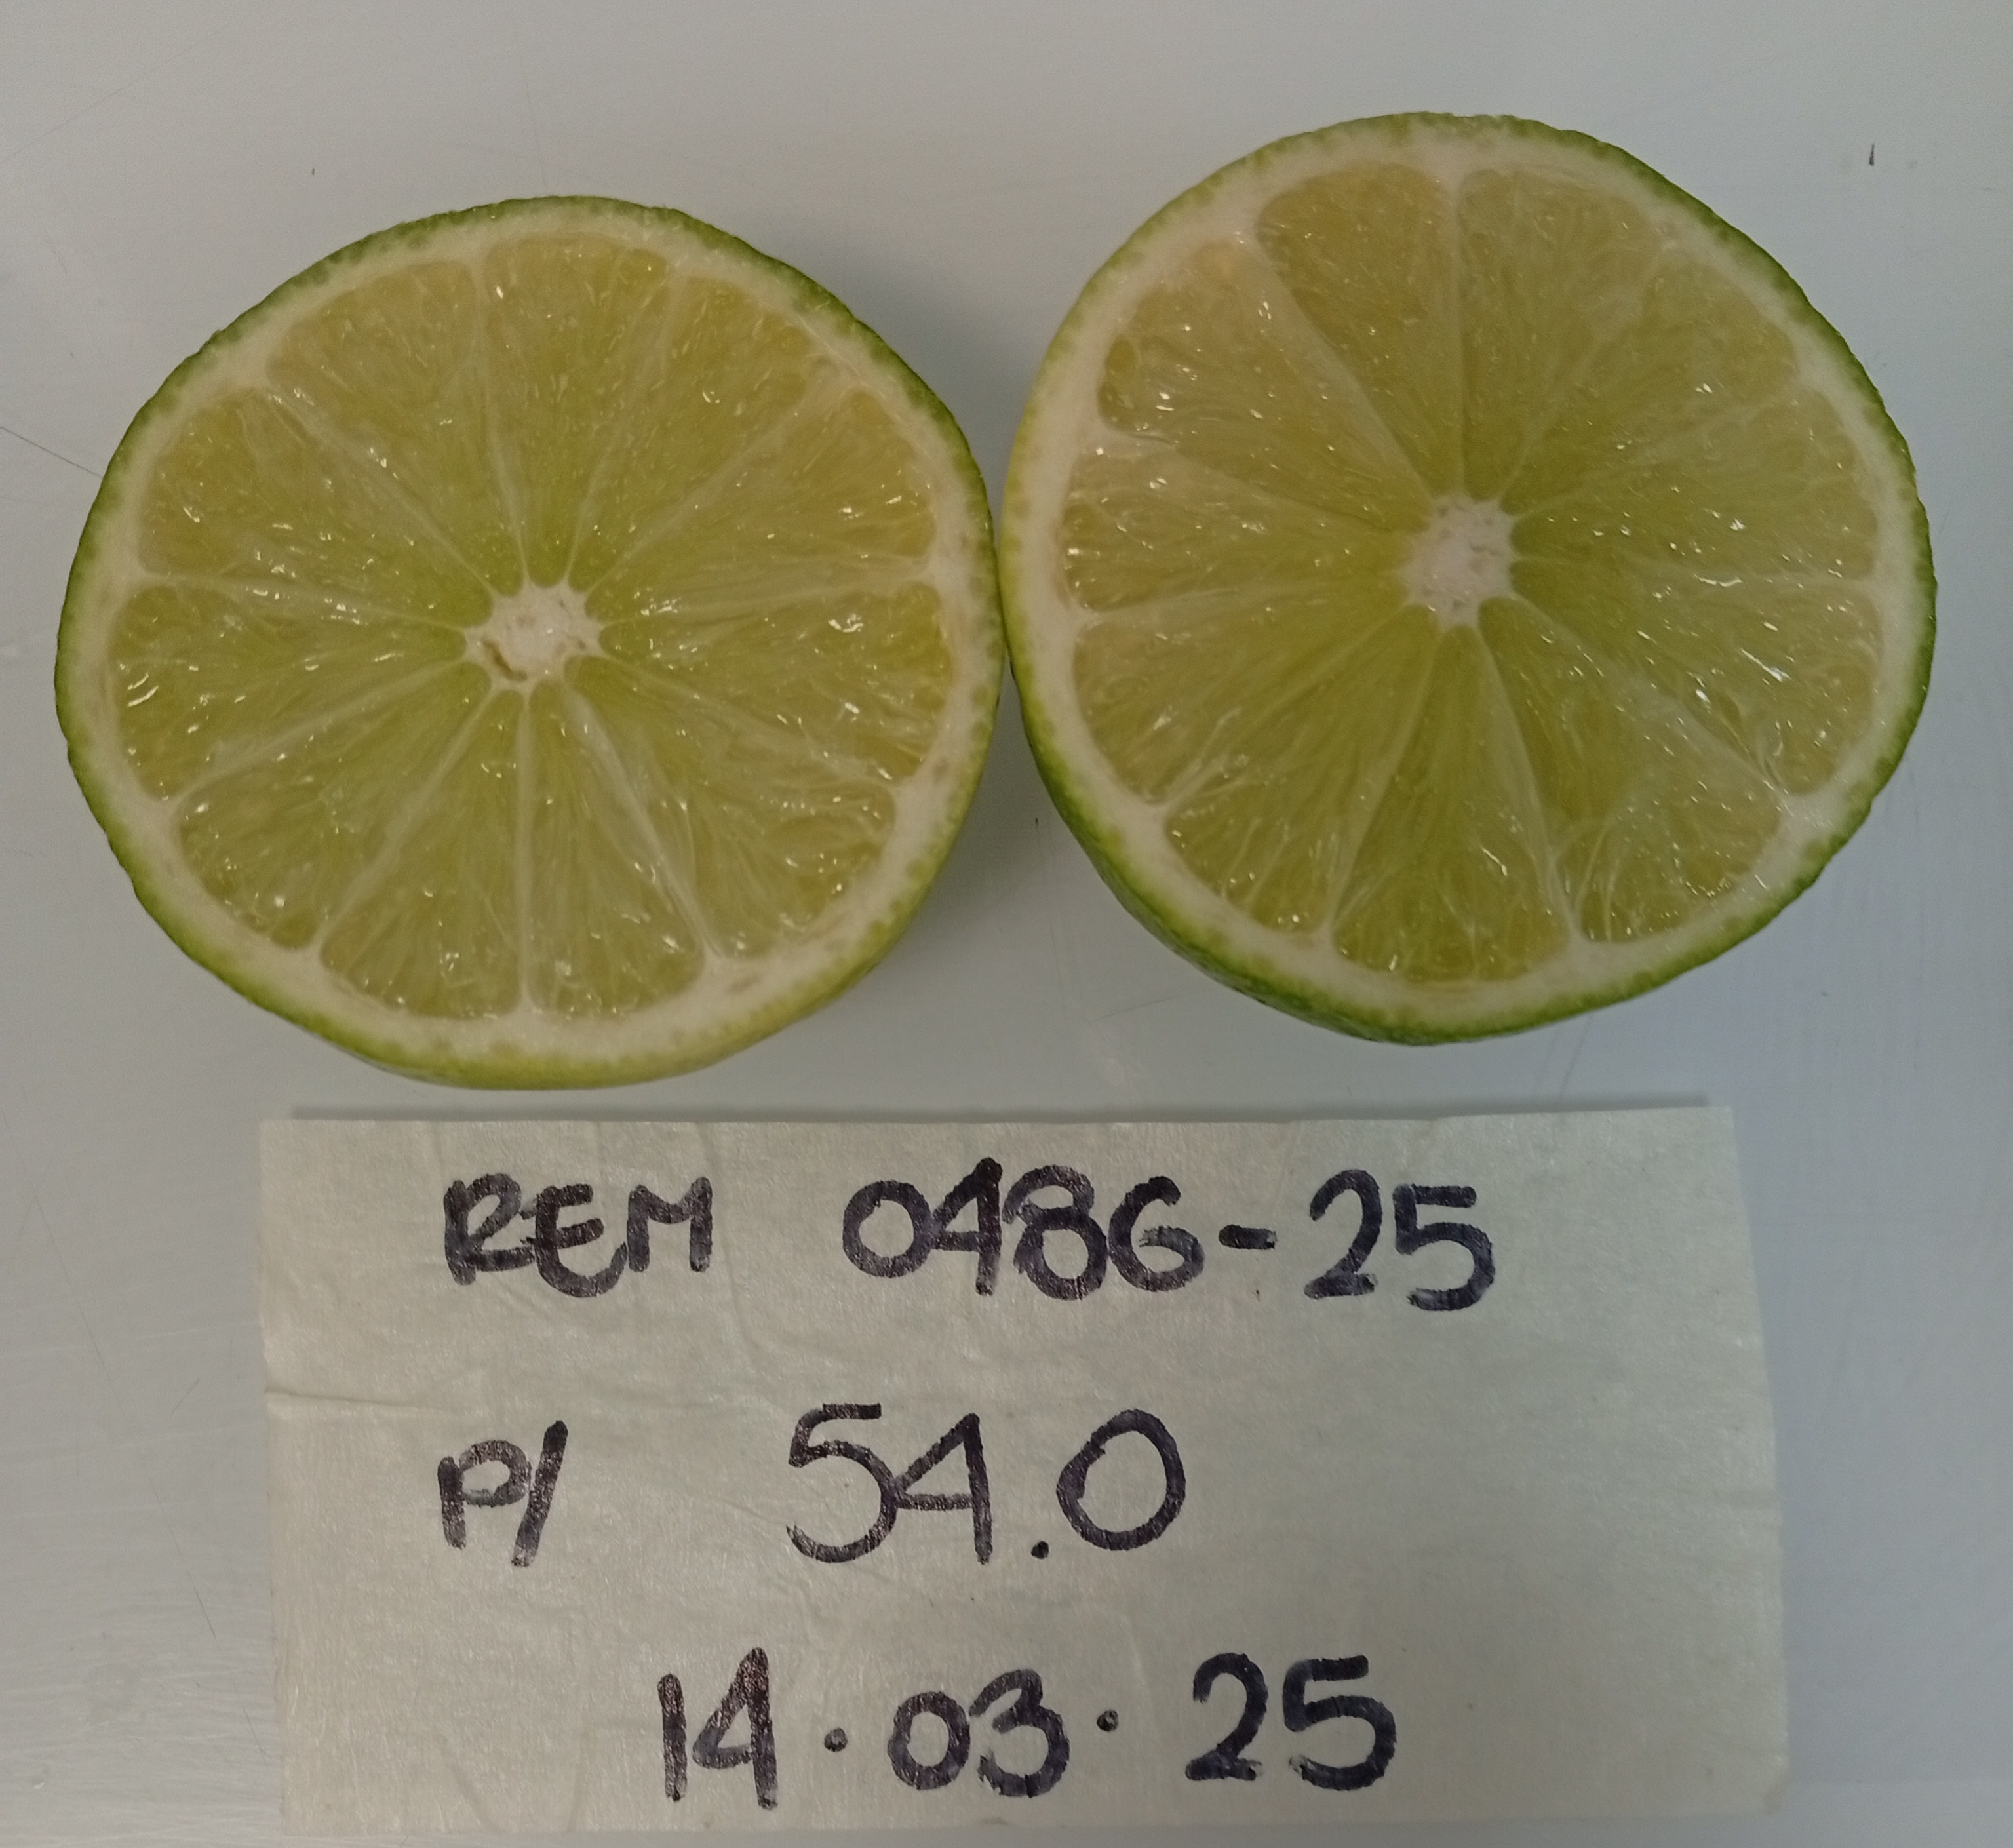 REM 0486-25
P/ 54.0
14.03.25